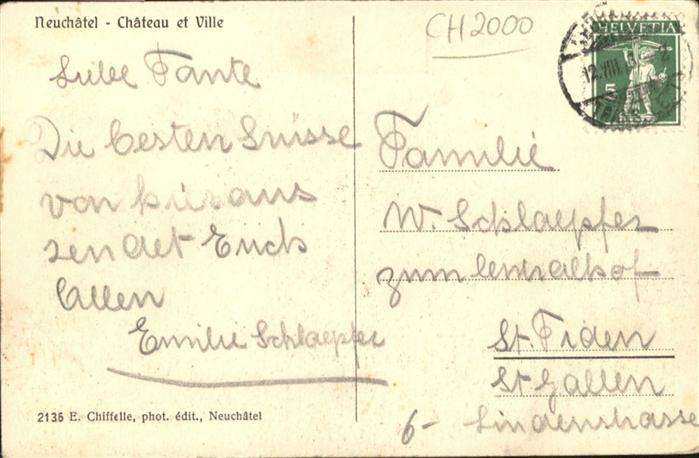 Neuchâtel - Château et Ville
CH2000
HELVETIA
5
12.VIII
Liebe Tante
Die besten Grüsse
von hier aus
sendet Euch
Allen
Emilie Schlaepfer
Familie
W. Schlaepfer
zum Centralhof
St Fiden
St Gallen
6- Lindenstrasse
2136 E. Chiffelle, phot. édit., Neuchâtel